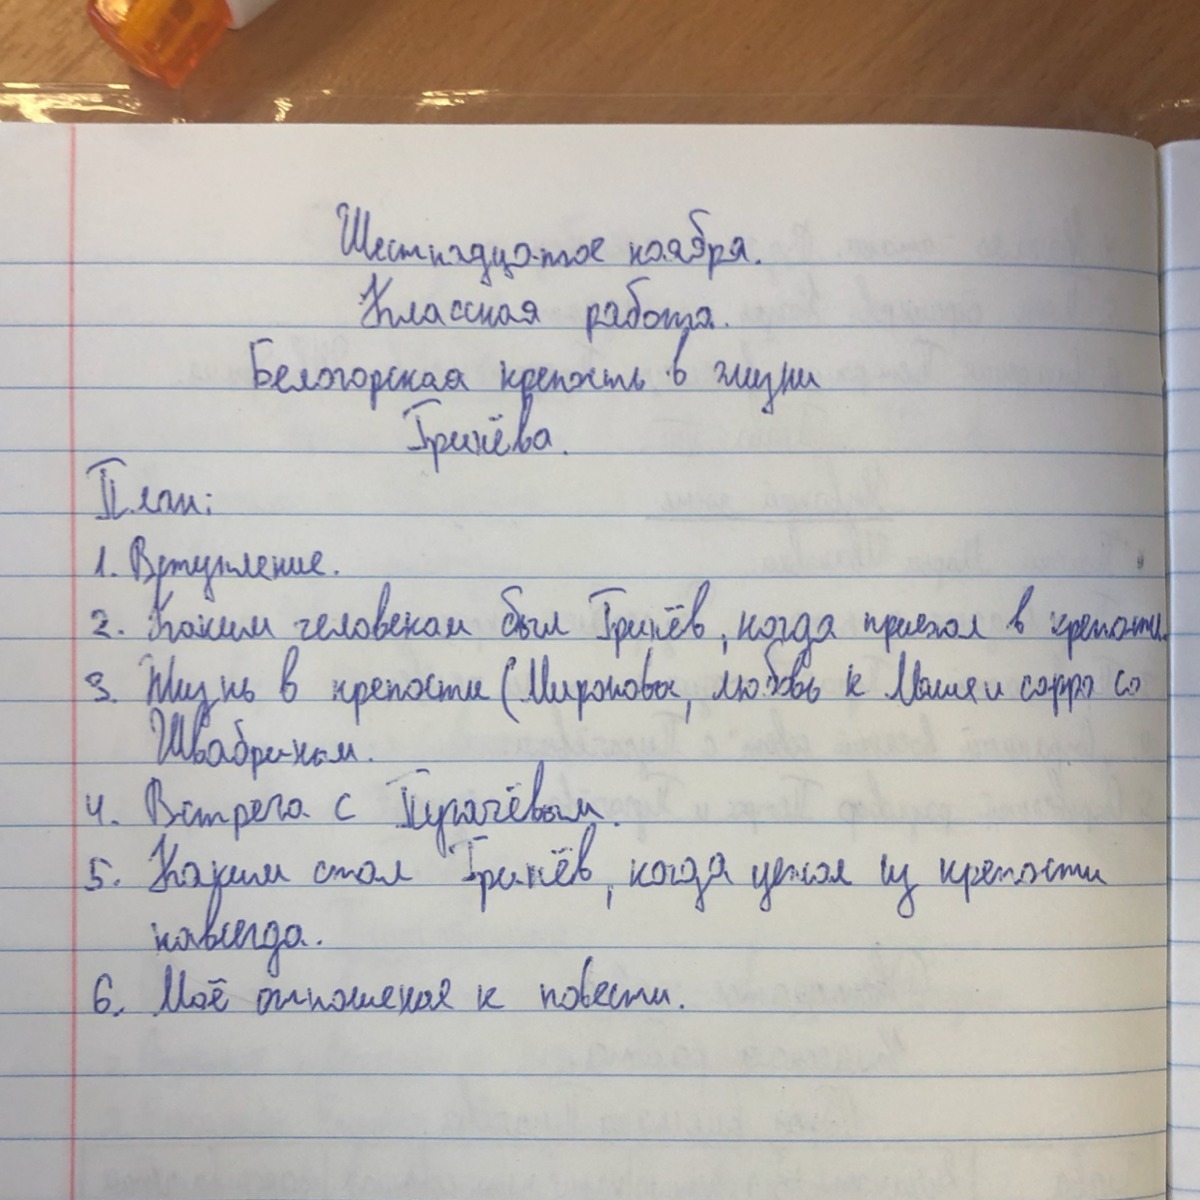 Шестнадцатое ноября.
Классная работа.
Белогорская крепость в жизни
Гринёва.
План:
1. Вступление.
2. Каким человеком был Гринёв, когда приехал в крепость.
3. Жизнь в крепости (Мироновы, любовь к Маше и ссора со
Швабриным.
4. Встреча с Пугачёвым.
5. Каким стал Гринёв, когда уехал из крепости
навсегда.
6. Моё отношение к повести.